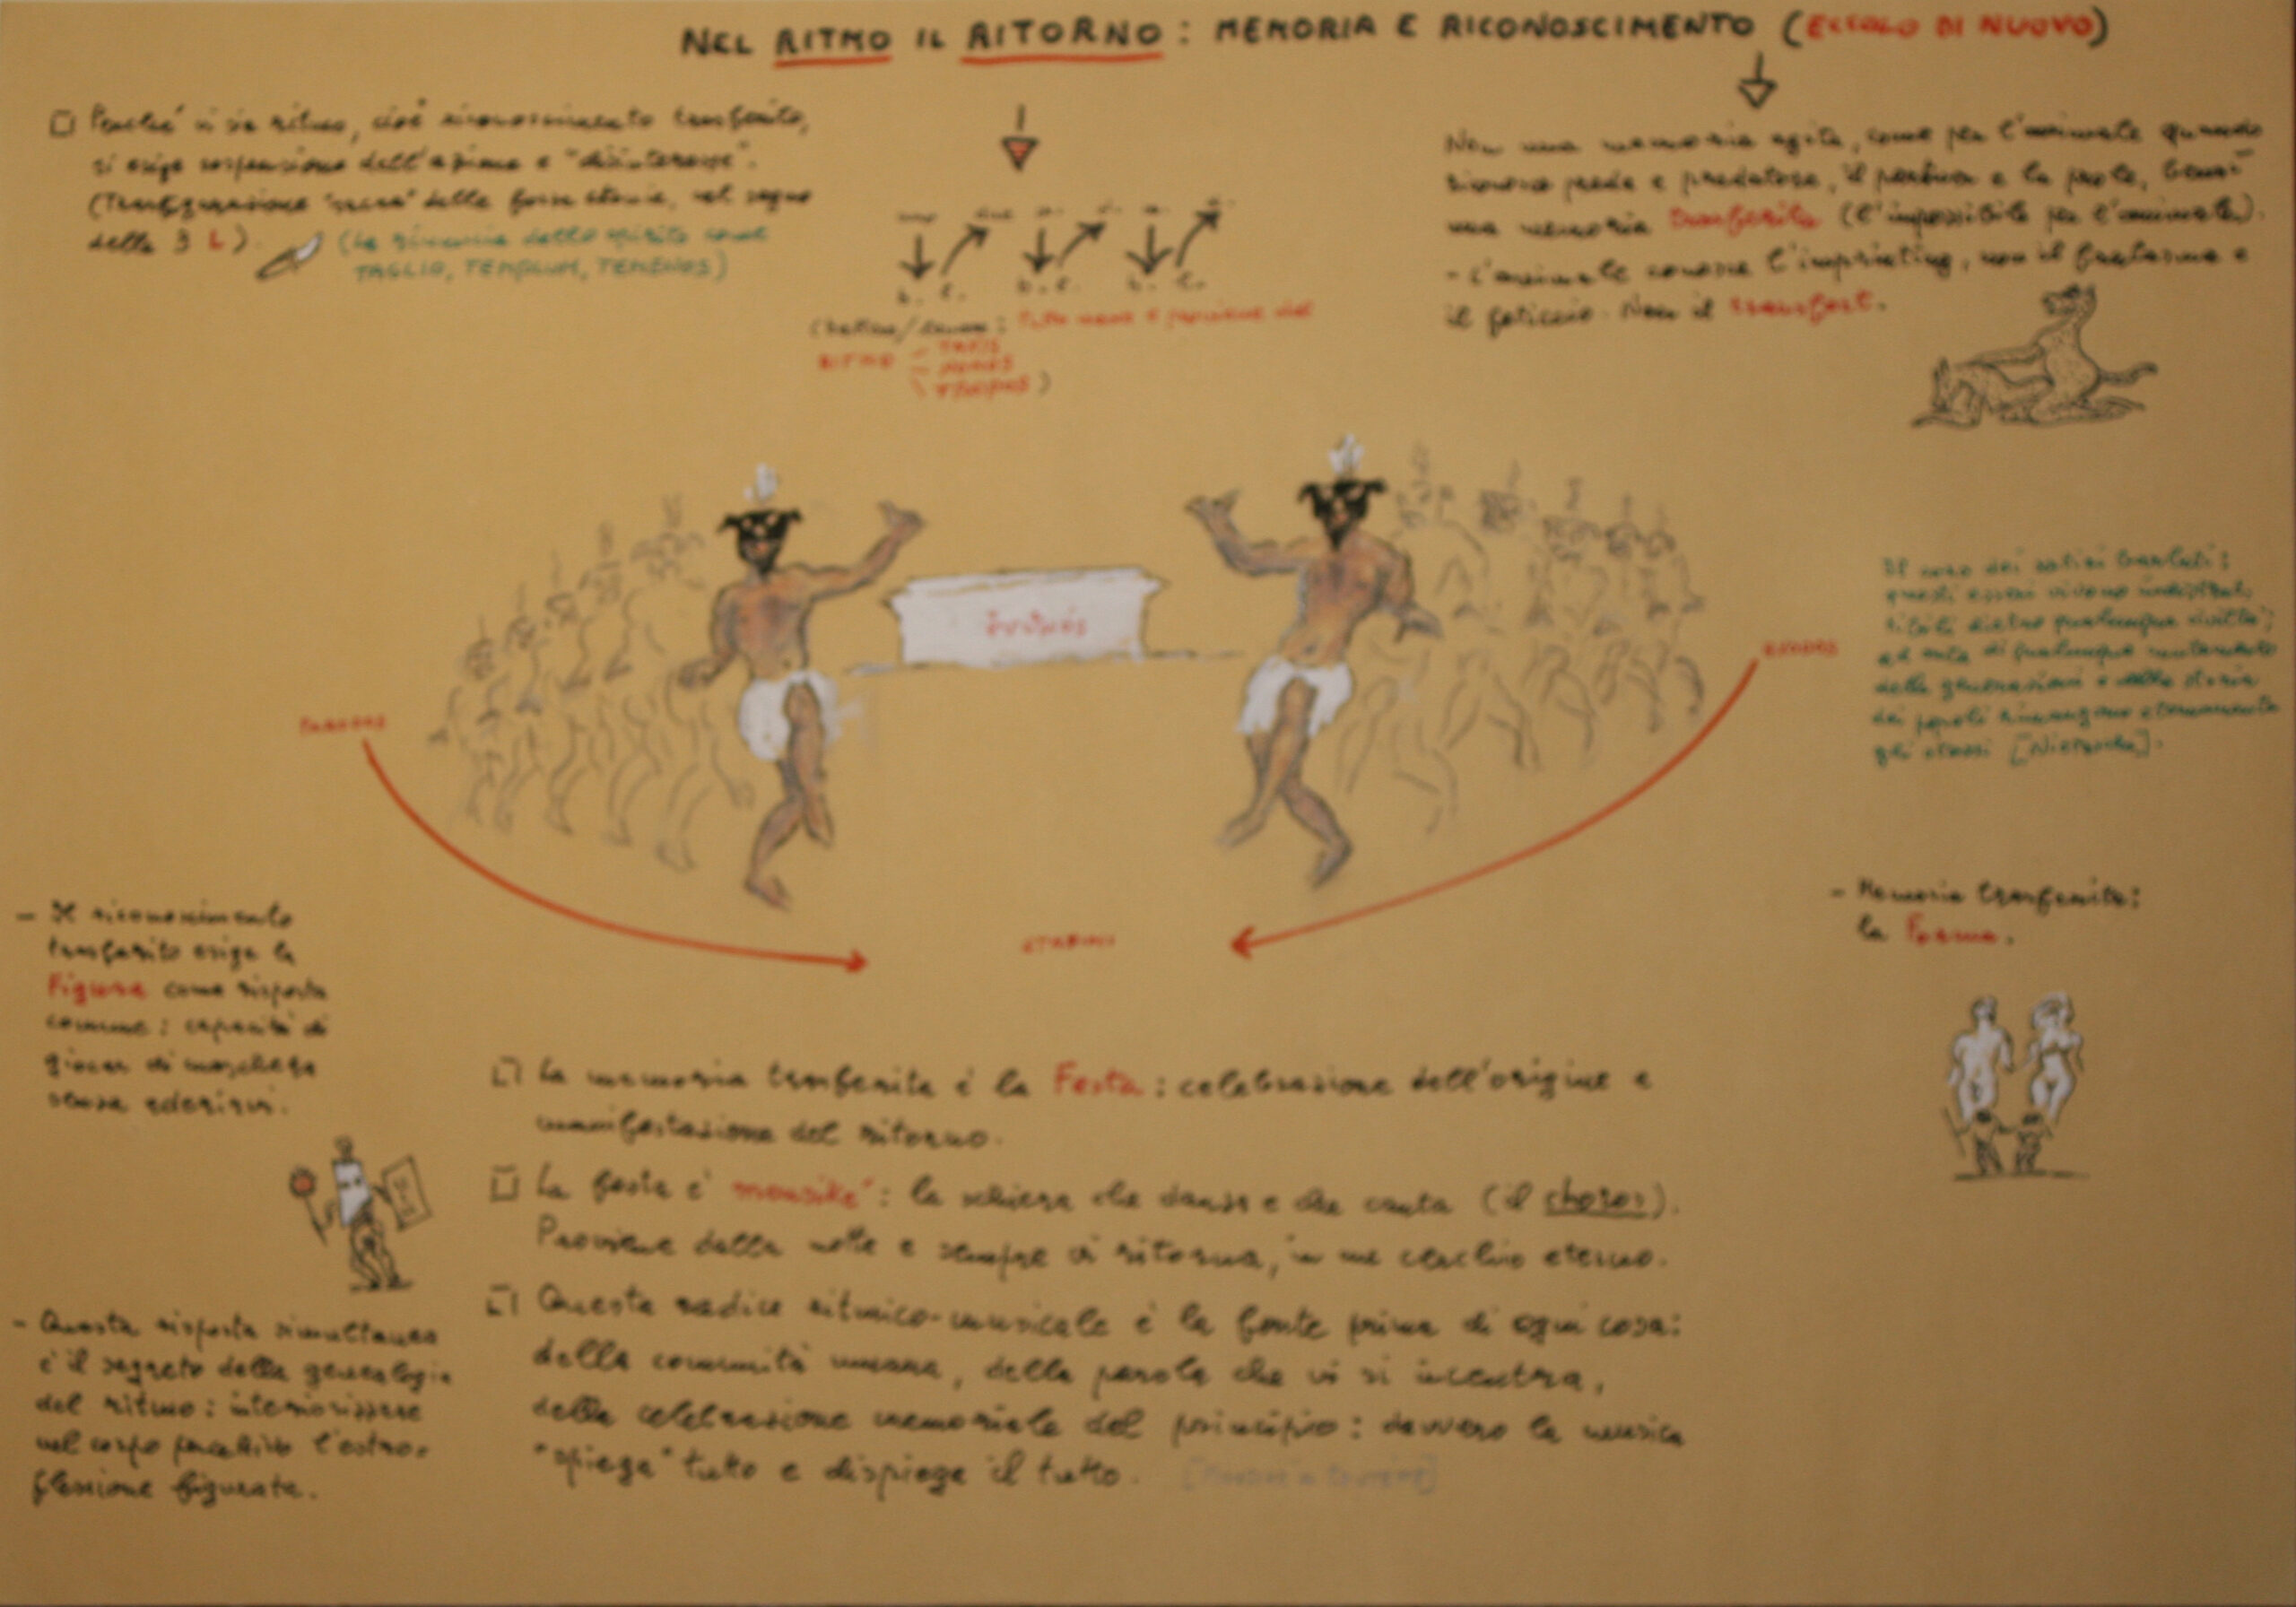 NEL RITMO IL RITORNO: MEMORIA E RICONOSCIMENTO (ECCOLO DI NUOVO)
Perché vi sia ritmo, cioè riconoscimento trasferito,
si esige sospensione dell'azione e "disinteresse".
(Trasfigurazione "sacra" delle forze, nel segno
delle 3 L).
(La rinuncia dello spirito come
TAGLIO, TEMPLUM, TEMENOS)
(battere/levare: tutto nasce e proviene dal
RITMO
TAXIS
NOMOS
TROPOS)
Non una memoria agita, come per l'animale quando
riconosce preda e predatore, il partner e la prole, bensì
una memoria trasferita (l'impossibile per l'animale).
- L'animale conosce l'imprinting, non il fantasma e
il feticcio. Non il transfert.
PARODOS
Il coro dei satiri barbati:
questi esseri vivono indistrut-
tibili dietro qualunque civiltà;
ad onta di qualunque mutamento
delle generazioni e della storia
dei popoli rimangono eternamente
gli stessi [Nietzsche].
- Il riconoscimento
trasferito esige la
Figura come risposta
comune: capacità di
giocar di maschera
senza aderirvi.
- Memoria trasferita:
la Forma.
La memoria trasferita è la Festa: celebrazione dell'origine e
manifestazione del ritorno.
La festa è mousiké: la schiera che danza e che canta (il choros).
Proviene dalla notte e sempre vi ritorna, in un cerchio eterno.
Questa radice ritmico-musicale è la fonte prima di ogni cosa:
della comunità umana, della parola che vi si incentra,
della celebrazione memoriale del principio: davvero la musica
"spiega" tutto e dispiega il tutto.
- Questa risposta simultanea
è il segreto della genealogia
del ritmo: interiorizzare
nel corpo percettivo l'estro-
flessione figurata.